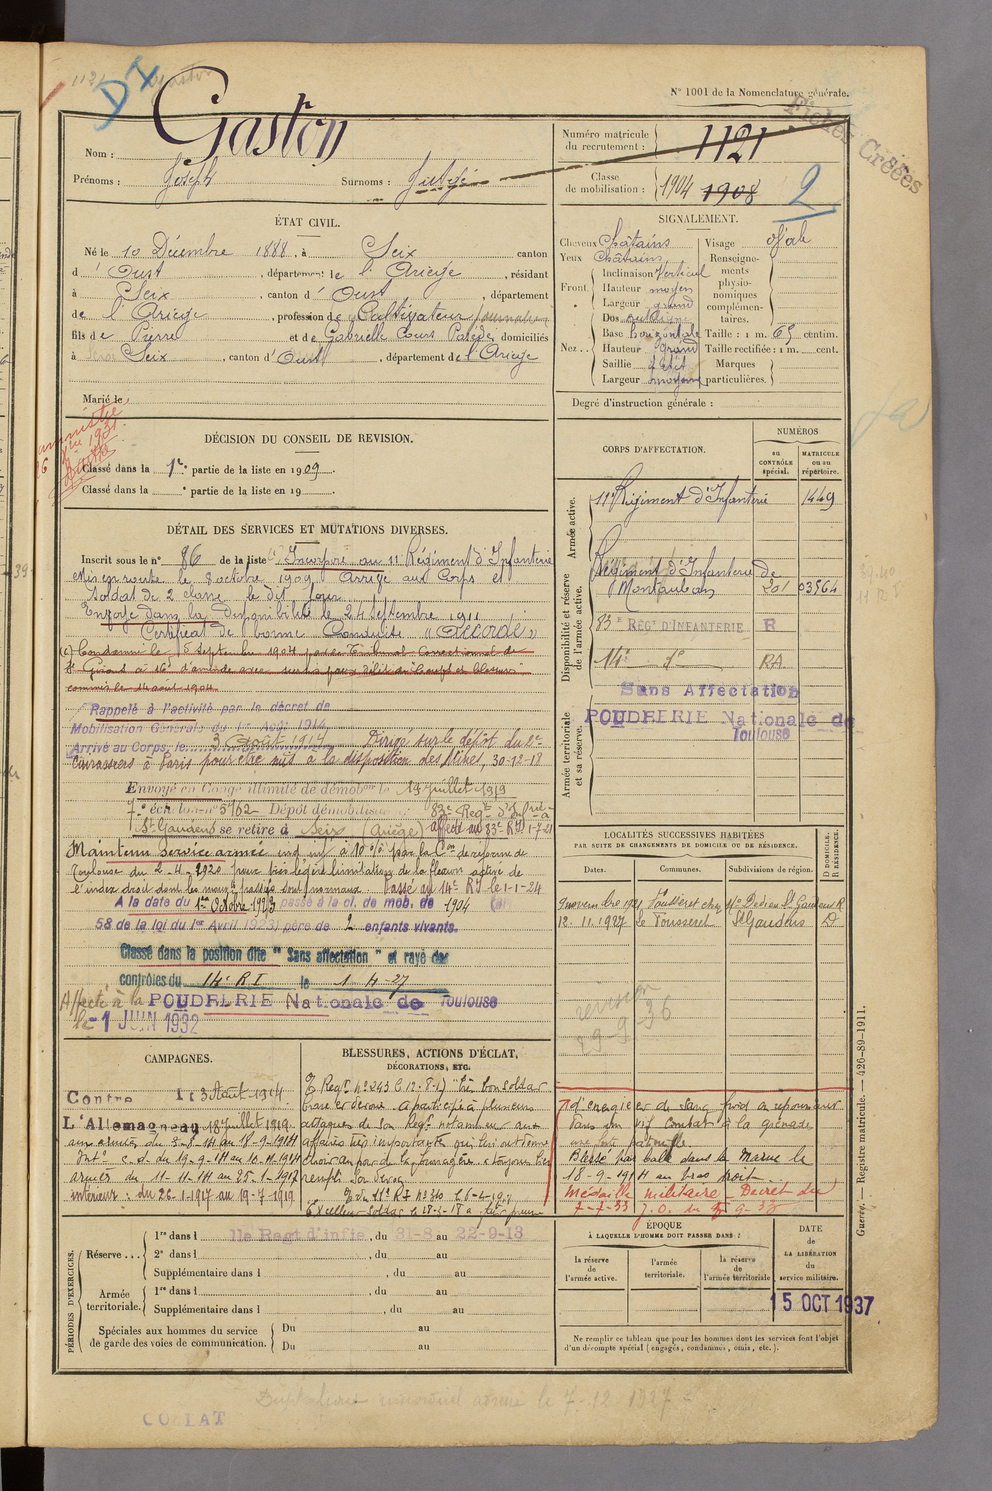 1121
D I
Gaston
N° 1001 de la Nomenclature générale.
Fiches Créées
Nom : Gaston
Prénoms : Joseph Surnoms :
Numéro matricule du recrutement : 1121
Classe de mobilisation : 1904 1908
2
ÉTAT CIVIL.
Né le 10 Décembre 1888, à Seix canton
d'Oust, département de l'Ariège, résidant
à Seix, canton d'Oust, département
de l'Ariège, profession de Cultivateur journalier
fils de Pierre et de Gabrielle domiciliés
à Seix, canton d'Oust, département de l'Ariège
Marié le
SIGNALEMENT.
Cheveux Châtains
Yeux Châtains
Front. Inclinaison Vertical
Hauteur moyen
Largeur grand
Nez.. Dos rectiligne
Base horizontale
Hauteur grand
Saillie petit
Largeur moyen
Visage ovale
Renseignements physionomiques complémentaires.
Taille : 1 m. 65 centim.
Taille rectifiée : 1 m. cent.
Marques particulières.
Degré d'instruction générale :
DÉCISION DU CONSEIL DE REVISION.
Classé dans la 1re partie de la liste en 1909.
Classé dans la e partie de la liste en 19 .
DÉTAIL DES SERVICES ET MUTATIONS DIVERSES.
Inscrit sous le n° 86 de la liste Incorporé au 11e Régiment d'Infanterie
Mis en route le 8 octobre 1909 Arrivé au Corps et
soldat de 2 classe le dit jour
Envoyé dans la disponibilité le 24 septembre 1911
Certificat de bonne Conduite "Accordé"
Condamné le 5 septembre 1904 par le Tribunal Correctionnel de
St Girons à 16f d'amende avec sursis pour délit de coups et blessures
commis le 14 août 1904
Rappelé à l'activité par le décret de
Mobilisation Générale du 1er Août 1914
Arrivé au Corps, le 3 août 1914 Dirigé sur le dépôt du 2e
Cuirassiers à Paris pour être mis à la disposition des Mines, 30-12-18
Envoyé en Congé illimité de démobon le 19 juillet 1919
7e échelon n° 5762 Dépôt démobilisateur 83e Regt d'Infrie
St Gaudens se retire à Seix (Ariège) affecté au 83e RI 1-7-21
Maintenu service armé ind. inf. à 10% par la Con de réforme de
Toulouse du 2-4-1920 pour très légère limitation de la flexion active de
l'index droit dont les mouvts passifs sont normaux. Passé au 14e RI le 1-1-24
A la date du 1er Octobre 1923 passé à la cl. de mob. de 1904 (art.
58 de la loi du 1er Avril 1923) père de 2 enfants vivants.
Classé dans la position dite "Sans affectation" et rayé des
contrôles du 14e R I le 1-4-27
Affecté à la POUDRERIE Nationale de Toulouse
le -1 JUIN 1932
CORPS D'AFFECTATION.
NUMÉROS
au CONTRÔLE spécial.
MATRICULE ou au répertoire.
Armée active.
11e Régiment d'Infanterie 1449
Disponibilité et réserve de l'armée active.
Régiment d'Infanterie de Montauban 201 03564
83E REGT D'INFANTERIE R
14e do RA
Sans Affectation
Armée territoriale et sa réserve.
POUDRERIE Nationale de Toulouse
LOCALITÉS SUCCESSIVES HABITÉES
PAR SUITE DE CHANGEMENTS DE DOMICILE OU DE RÉSIDENCE.
Dates. Communes. Subdivisions de région.
D DOMICILE. R RÉSIDENCE.
St Gaudens R
12.11.1927 le Fousseret St Gaudens D
revision
29-9-36
CAMPAGNES.
Contre du 3 Août 1914
L'Allemagne au 18 juillet 1919.
aux armées du 3-8-14 au 18-9-1914
Intr c. d. du 19-9-14 au 10-11-1914
armées du 11-11-14 au 25-1-1917
intérieur : du 26-1-1917 au 19-7-1919
BLESSURES, ACTIONS D'ÉCLAT,
DÉCORATIONS, ETC.
O. Regt n° 243 le 12-8-17 "Très bon soldat
brave et dévoué. A participé à plusieurs
attaques de son Regt notamment aux
affaires très importantes qui lui ont donné
droit au port de la fourragère, a toujours bien
rempli son devoir.
O. du 11e RI n° 310 le 6-4-19
Excellent soldat le 28-5-18 a fait preuve
d'énergie et de sang froid en repoussant
dans un vif combat à la grenade
une forte patrouille.
Blessé par balle dans la Marne le
18-9-1914 au bras droit.
Médaille militaire - Décret du
7-7-33 J.O. du
PÉRIODES D'EXERCICES.
Réserve ... 1re dans l 11e Regt d'infie, du 31-8 au 22-9-13
2e dans l , du au
Supplémentaire dans l , du au
Armée territoriale. 1re dans l , du au
Supplémentaire dans l , du au
Spéciales aux hommes du service de garde des voies de communication. Du au
Du au
ÉPOQUE
À LAQUELLE L'HOMME DOIT PASSER DANS :
la réserve de l'armée active.
l'armée territoriale.
la réserve de l'armée territoriale
DATE DE LA LIBÉRATION du service militaire.
15 OCT 1937
Ne remplir ce tableau que pour les hommes dont les services font l'objet
d'un décompte spécial (engagés, condamnés, omis, etc.).
Guerre. — Registre matricule. — 426-89-1911.
le 7-12-1927
COLLAT